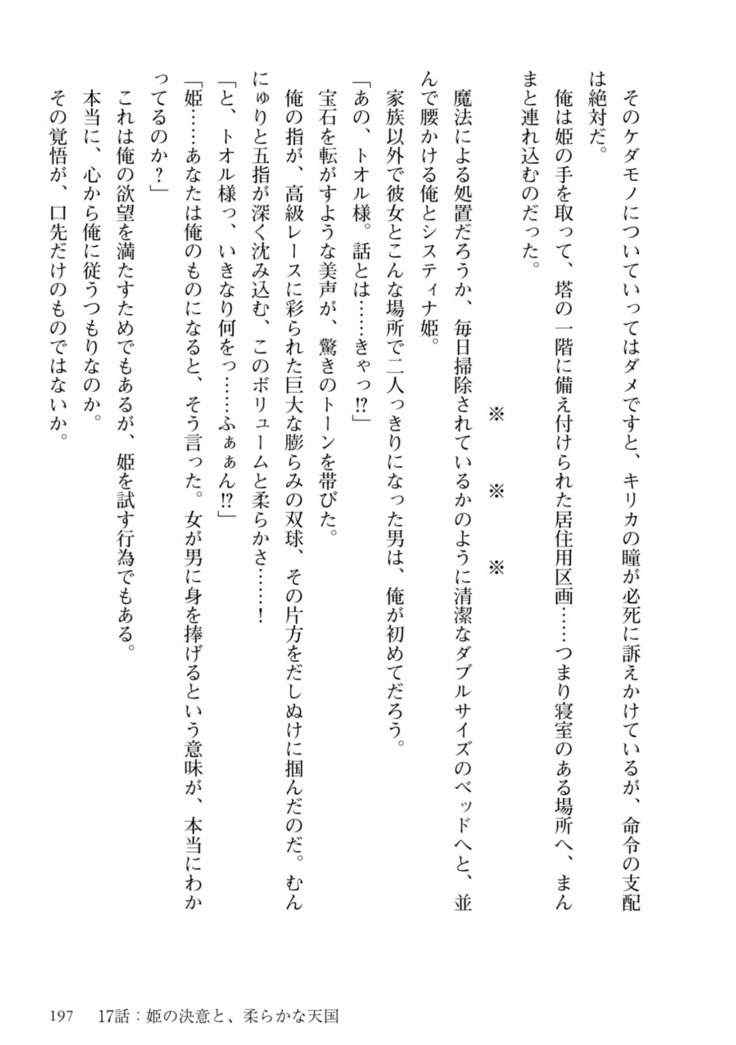 そのケダモノについていってはダメですと、キリカの瞳が必死に訴えかけているが、命令の支配
は絶対だ。
俺は姫の手を取って、塔の一階に備え付けられた居住用区画……つまり寝室のある場所へ、まん
まと連れ込むのだった。
※　※　※
魔法による処置だろうか、毎日掃除されているかのように清潔なダブルサイズのベッドへと、並
んで腰かける俺とシスティナ姫。
家族以外で彼女とこんな場所で二人っきりになった男は、俺が初めてだろう。
「あの、トオル様。話とは……きゃっ!?」
宝石を転がすような美声が、驚きのトーンを帯びた。
俺の指が、高級レースに彩られた巨大な膨らみの双球、その片方をだしぬけに掴んだのだ。むん
にゅりと五指が深く沈み込む、このボリュームと柔らかさ……！
「と、トオル様っ、いきなり何をっ……ふぁぁん!?」
「姫……あなたは俺のものになると、そう言った。女が男に身を捧げるという意味が、本当にわか
ってるのか？」
これは俺の欲望を満たすためでもあるが、姫を試す行為でもある。
本当に、心から俺に従うつもりなのか。
その覚悟が、口先だけのものではないか。
197　17話：姫の決意と、柔らかな天国